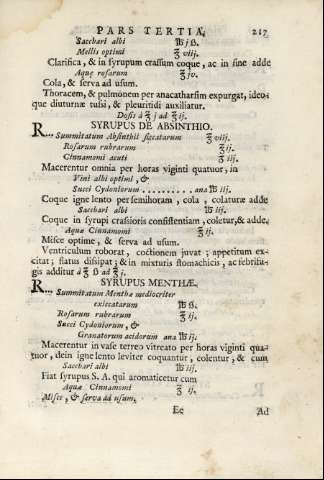 PARS TERTIA. 217
Sacchari albi ℔ j ß.
Mellis optimi ℥ viij.
Clarifica, & in syrupum crassum coque, ac in fine adde
Aquæ rosarum ℥ jv.
Cola, & serva ad usum.
Thoracem, & pulmonem per anacatharsim expurgat, ideo-
que diuturnæ tussi, & pleuritidi auxiliatur.
Dosis à ℥ j ad ℥ ij.
SYRUPUS DE ABSINTHIO.
R... Summitatum Absinthii siccatarum ℥ viij.
Rosarum rubrarum ℥ ij.
Cinnamomi acuti ℥ iij.
Macerentur omnia per horas viginti quatuor, in
Vini albi optimi, &
Succi Cydoniorum .......... ana ℔ iij.
Coque igne lento per semihoram, cola, colaturæ adde
Sacchari albi ℔ iij.
Coque in syrupi crassioris consistentiam, coletur, & adde.
Aquæ Cinnamomi ℥ ij.
Misce optime, & serva ad usum.
Ventriculum roborat, coctionem juvat; appetitum ex-
citat; flatus dissipat; & in mixturis stomachicis, ac febrifu-
gis additur à ℥ ß ad ℥ j.
SYRUPUS MENTHÆ.
R... Summitatum Menthæ mediocriter
exiccatarum ℔ ß.
Rosarum rubrarum ℥ ij.
Succi Cydoniorum, &
Granatorum acidorum ana ℔ ij.
Macerentur in vase terreo vitreato per horas viginti qua-
tuor, dein igne lento leviter coquantur, colentur, & cum
Sacchari albi ℔ iij.
Fiat syrupus S. A. qui aromaticetur cum
Aquæ Cinnamomi ℥ ij.
Misce, & serva ad usum.
Ee Ad